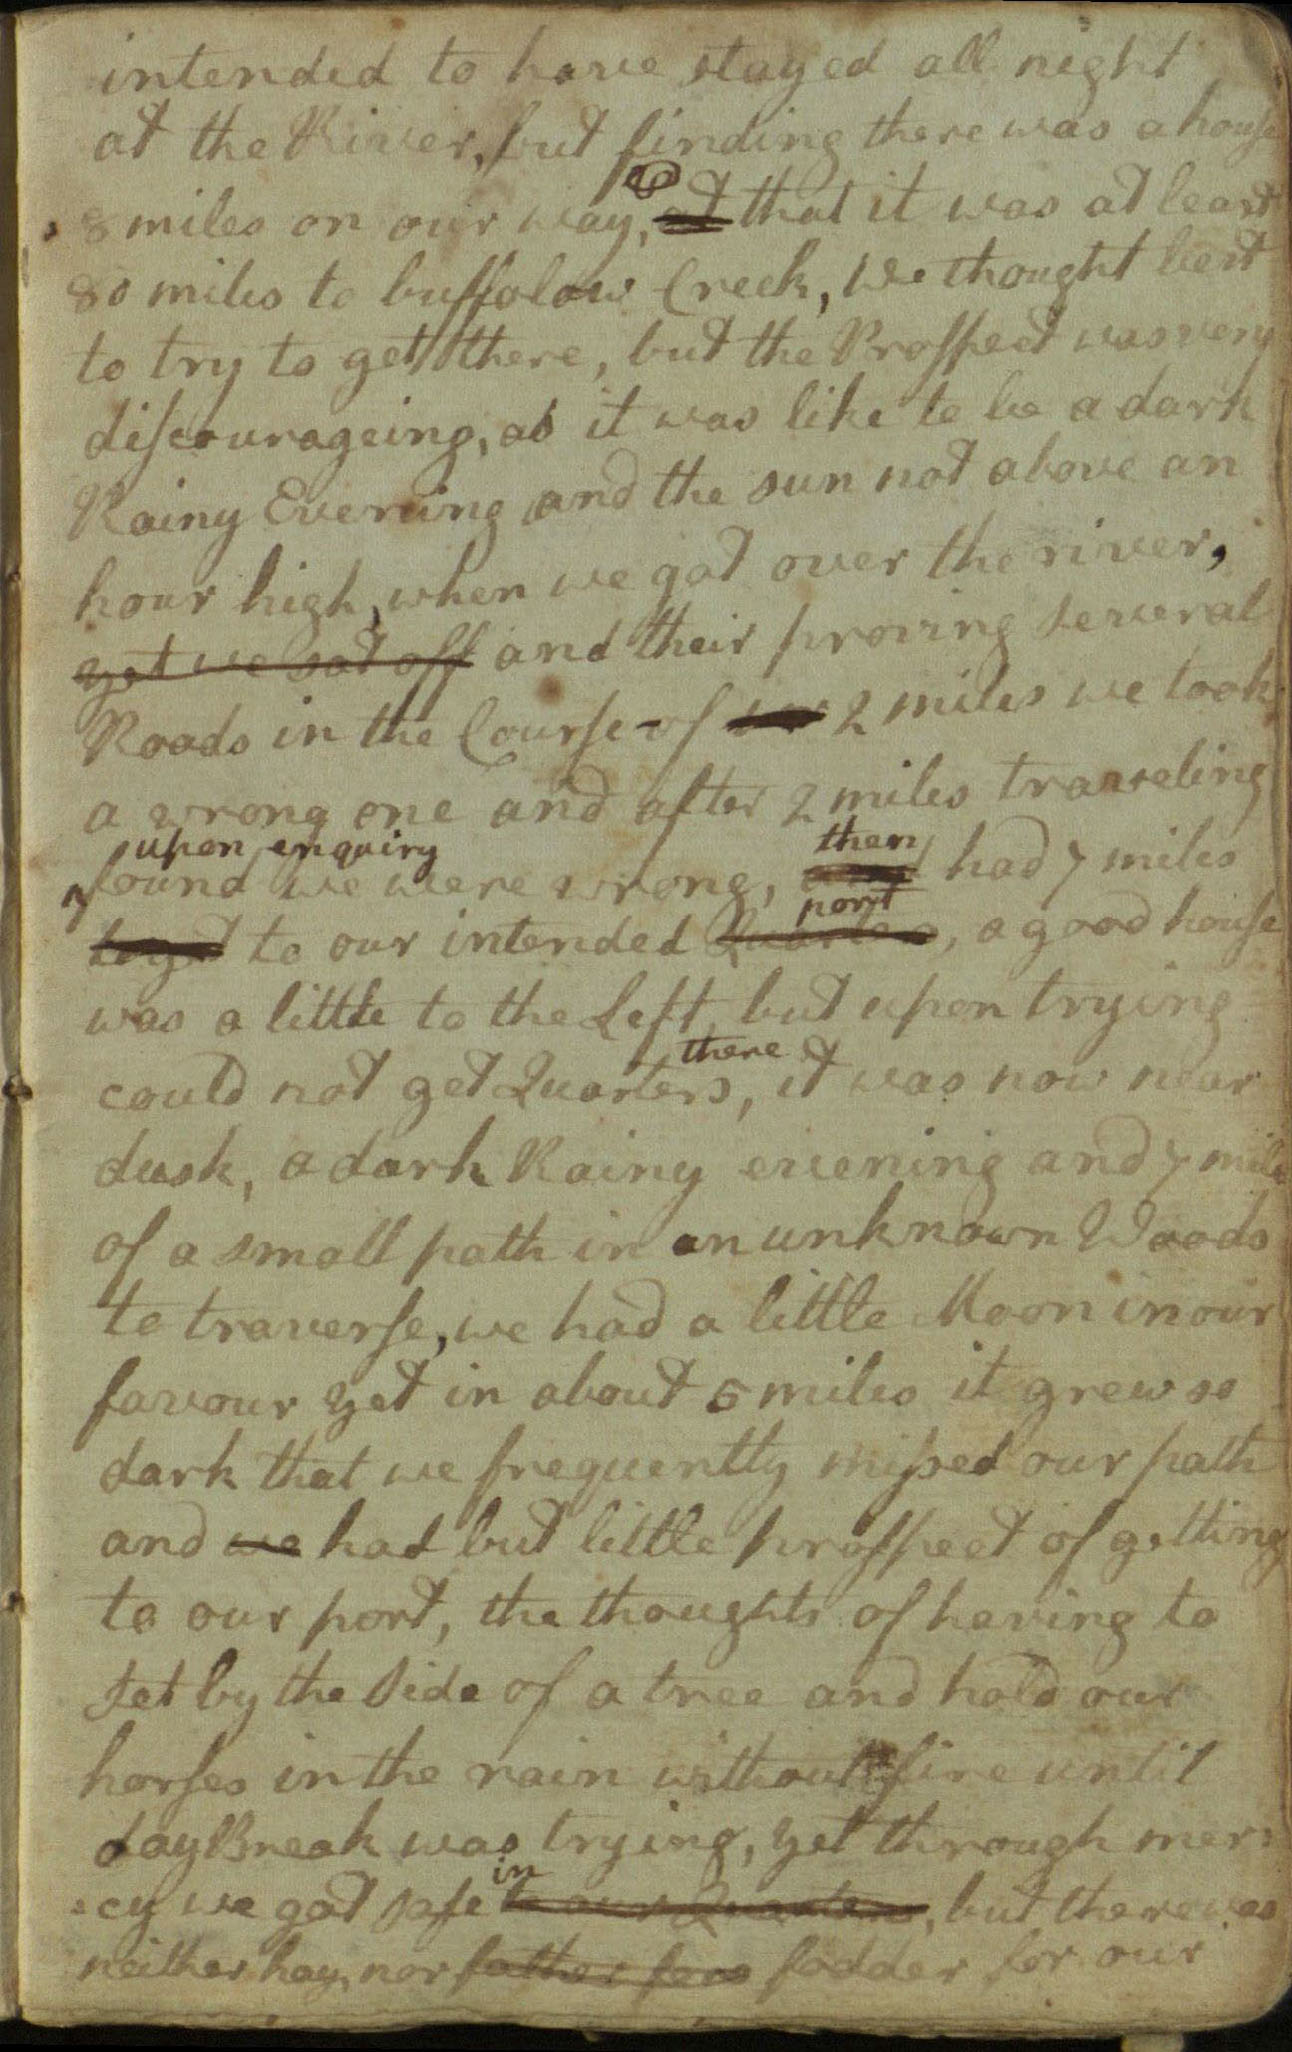 intended to have stayed all night
at the River, but finding there was a house
8 miles on our way, & that it was at least
80 miles to buffalow Creek, we thought best
to try to get there, but the Prospect was very
discourageing, as it was like to be a dark
Rainy Evening and the sun not above an
hour high, when we got over the river,
yet we sat off and their proving several
Roads in the Course of 2 miles we took
a wrong one and after 2 miles traveling
upon enquiry then
found we were wrong, had 7 miles
port
to our intended Quarters, a good house
was a little to the Left, but upon trying
there
could not get Quarters, it was now near
dusk, a dark Rainy evening and 7 mile
of a small path in an unknown Woods
to traverse, we had a little Moon in our
favour yet in about 5 miles it grew so
dark that we frequently missed our path
and we had but little prospect of getting
to our port, the thoughts of having to
set by the side of a tree and hold our
horses in the rain without fire until
dayBreak was trying, yet through mer:
in
:cy we got safe to our Quarters, but there was
neither hay, nor fodder for our